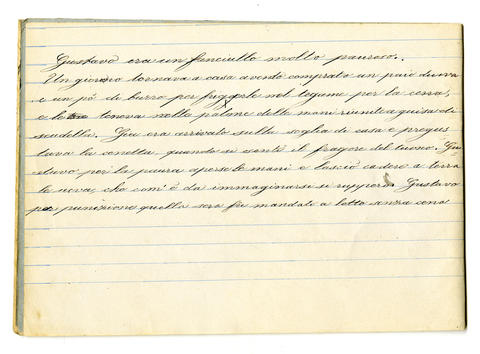 Gustavo era un fanciullo molto pauroso.
Un giorno tornava a casa avendo comprato un paio duova
e un pò di burro per friggerle nel tegame per la cena,
e le teneva nelle palme delle mani riunite a guisa di
scudella. Giu era arrivato sulla soglia di casa e pregus
tava la cenetta, quando si sentì il fragore del tuono. Gu
stavo per la paura aperse le mani e lasciò cadere a terra
le uova, che com'è da immaginarsi si ruppero. Gustavo
per punizione quella sera fu mandato a letto senza cena